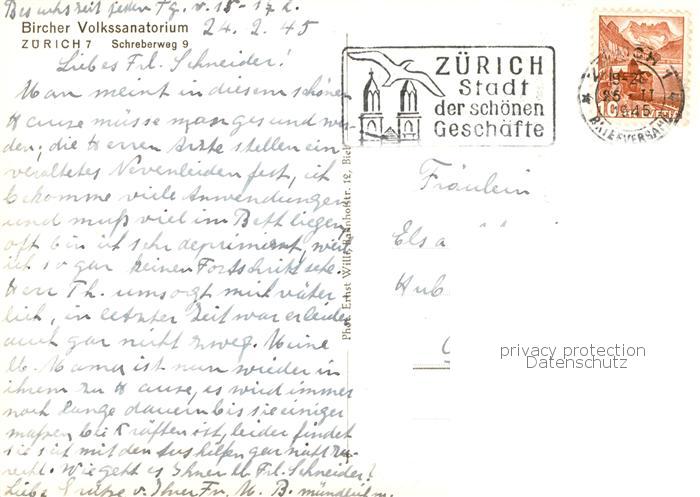 Besuchszeit jeden Tg. v. 15 - 17 h.
Bircher Volkssanatorium 24. 2. 45
ZÜRICH 7 Schreberweg 9
Liebes Frl. Schneider!
Man meint in diesem schönen
Hause müsse man gesund wer-
den; die Herren Ärzte stellen ein
veraltetes Nervenleiden fest, ich
bekomme viele Anwendungen
und muß viel im Bett liegen
oft bin ich sehr deprimiert, weil
ich so gar keinen Fortschritt sehe.
Herr Th. umsorgt mich väter
lich, in letzter Zeit war er leider
auch gar nicht zweg. Meine
lb. Mama ist nun wieder in
ihrem zu Hause, es wird immer
noch lange dauern bis sie einiger
maßen bei Kräften ist, leider findet
sie sich mit den Aushilfen gar nicht zu-
recht. Wie geht es Ihnen lb. Frl. Schneider?
Liebe Grüße v. Ihrer Fr. M. B.
Phot. Ernst Willi, Bahnhofstr. 12, Biel
ZÜRICH
Stadt
der schönen
Geschäfte
ZÜRICH 1
25. II
1945
BRIEFVERSAND
10
Fräulein
Elsa
Hub
privacy protection
Datenschutz